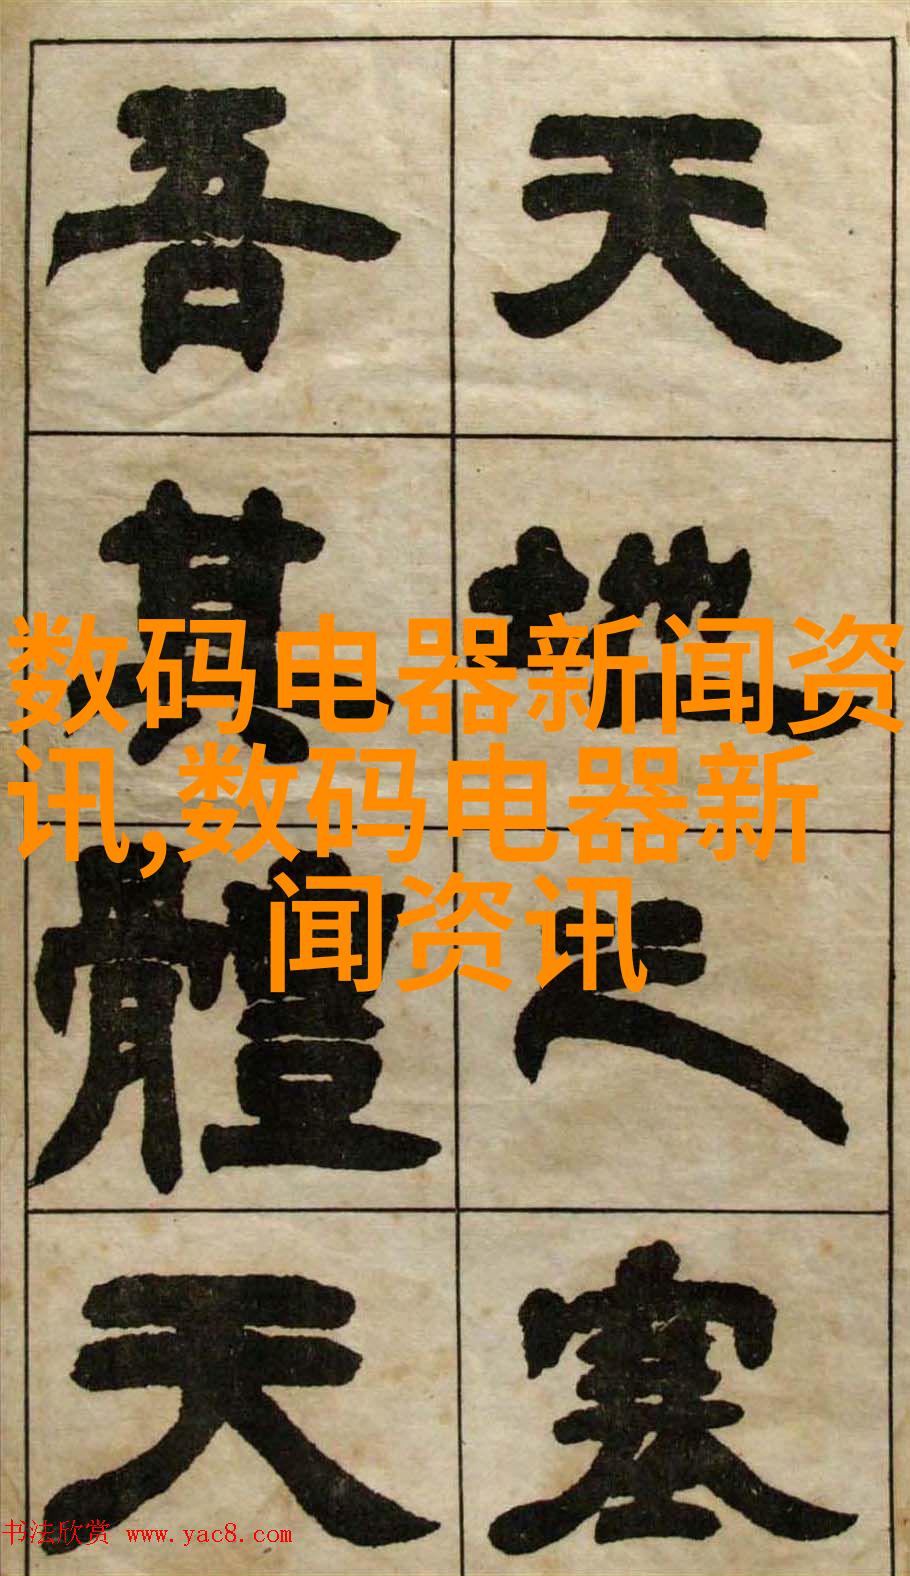 天地之塞
吾其體天
数码电器新闻资
讯,数码电器新
闻资讯
书法欣赏 www.yac8.com